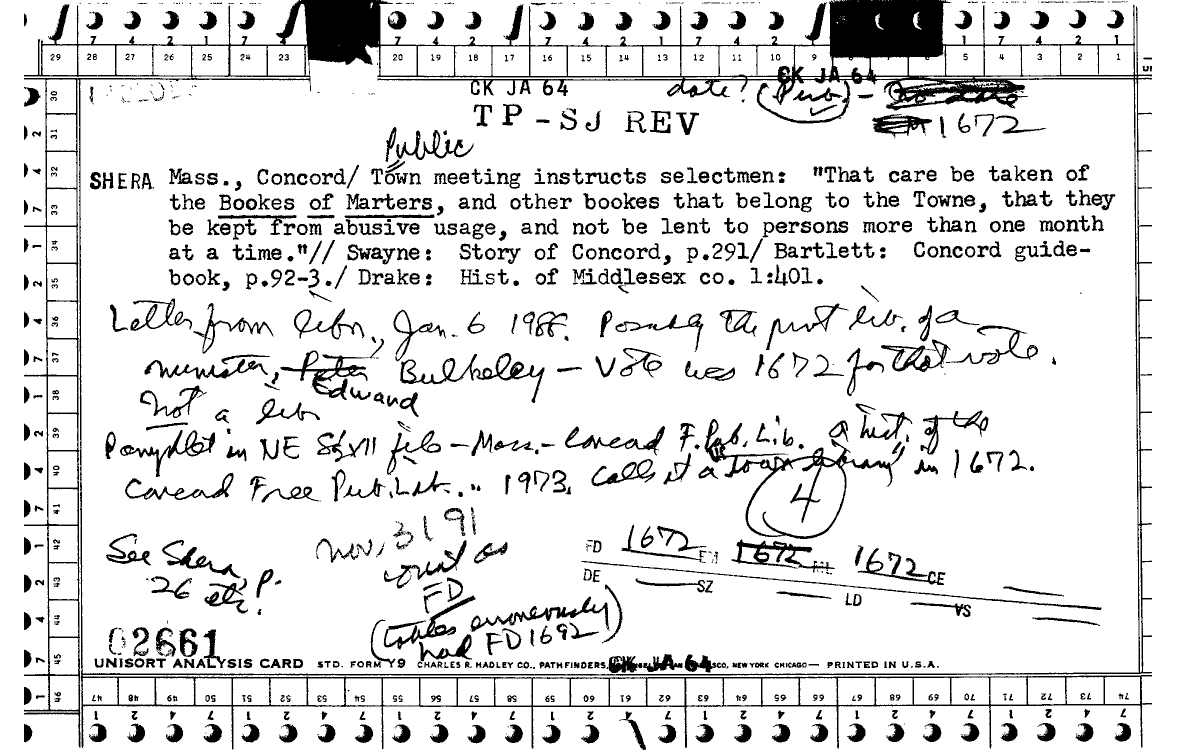 7 4 2 1 7 4 7 4 2 1 7 4 2 1 7 4 2 1 7 4 2 1
29 28 27 26 25 24 23 20 19 18 17 16 15 14 13 12 11 10 9 5 4 3 2 1
CK JA 64 date? (Pub.) - CK JA 64
TP-SJ REV 1672
Public
SHERA Mass., Concord/ Town meeting instructs selectmen: "That care be taken of
the Bookes of Marters, and other bookes that belong to the Towne, that they
be kept from abusive usage, and not be lent to persons more than one month
at a time."// Swayne: Story of Concord, p.291/ Bartlett: Concord guide-
book, p.92-3./ Drake: Hist. of Middlesex co. 1:401.
Letter from libn., Jan. 6 1988. Possibly the priv lib. of a
minister, Peter Bulkeley – Vote was 1672 for that vote.
Edward
Not a lib
Pamphlet in NE file – Mass. – Concord F. Pub. Lib. A hist. of the
Concord Free Pub. Lib... 1973, calls it a "town library" in 1672.
4
See Shera, P.
26 etc.
Nov. 3 191
treat as
FD
(tables erroneously
had FD 1692)
FD 1672 EM 1672 ML 1672 CE
DE SZ LD VS
02661
UNISORT ANALYSIS CARD STD. FORM Y9 CHARLES R. HADLEY CO., PATHFINDERS, CK JA 64 SCO, NEW YORK CHICAGO— PRINTED IN U.S.A.
47 48 49 50 51 52 53 54 55 56 57 58 59 60 61 62 63 64 65 66 67 68 69 70 71 72 73 74